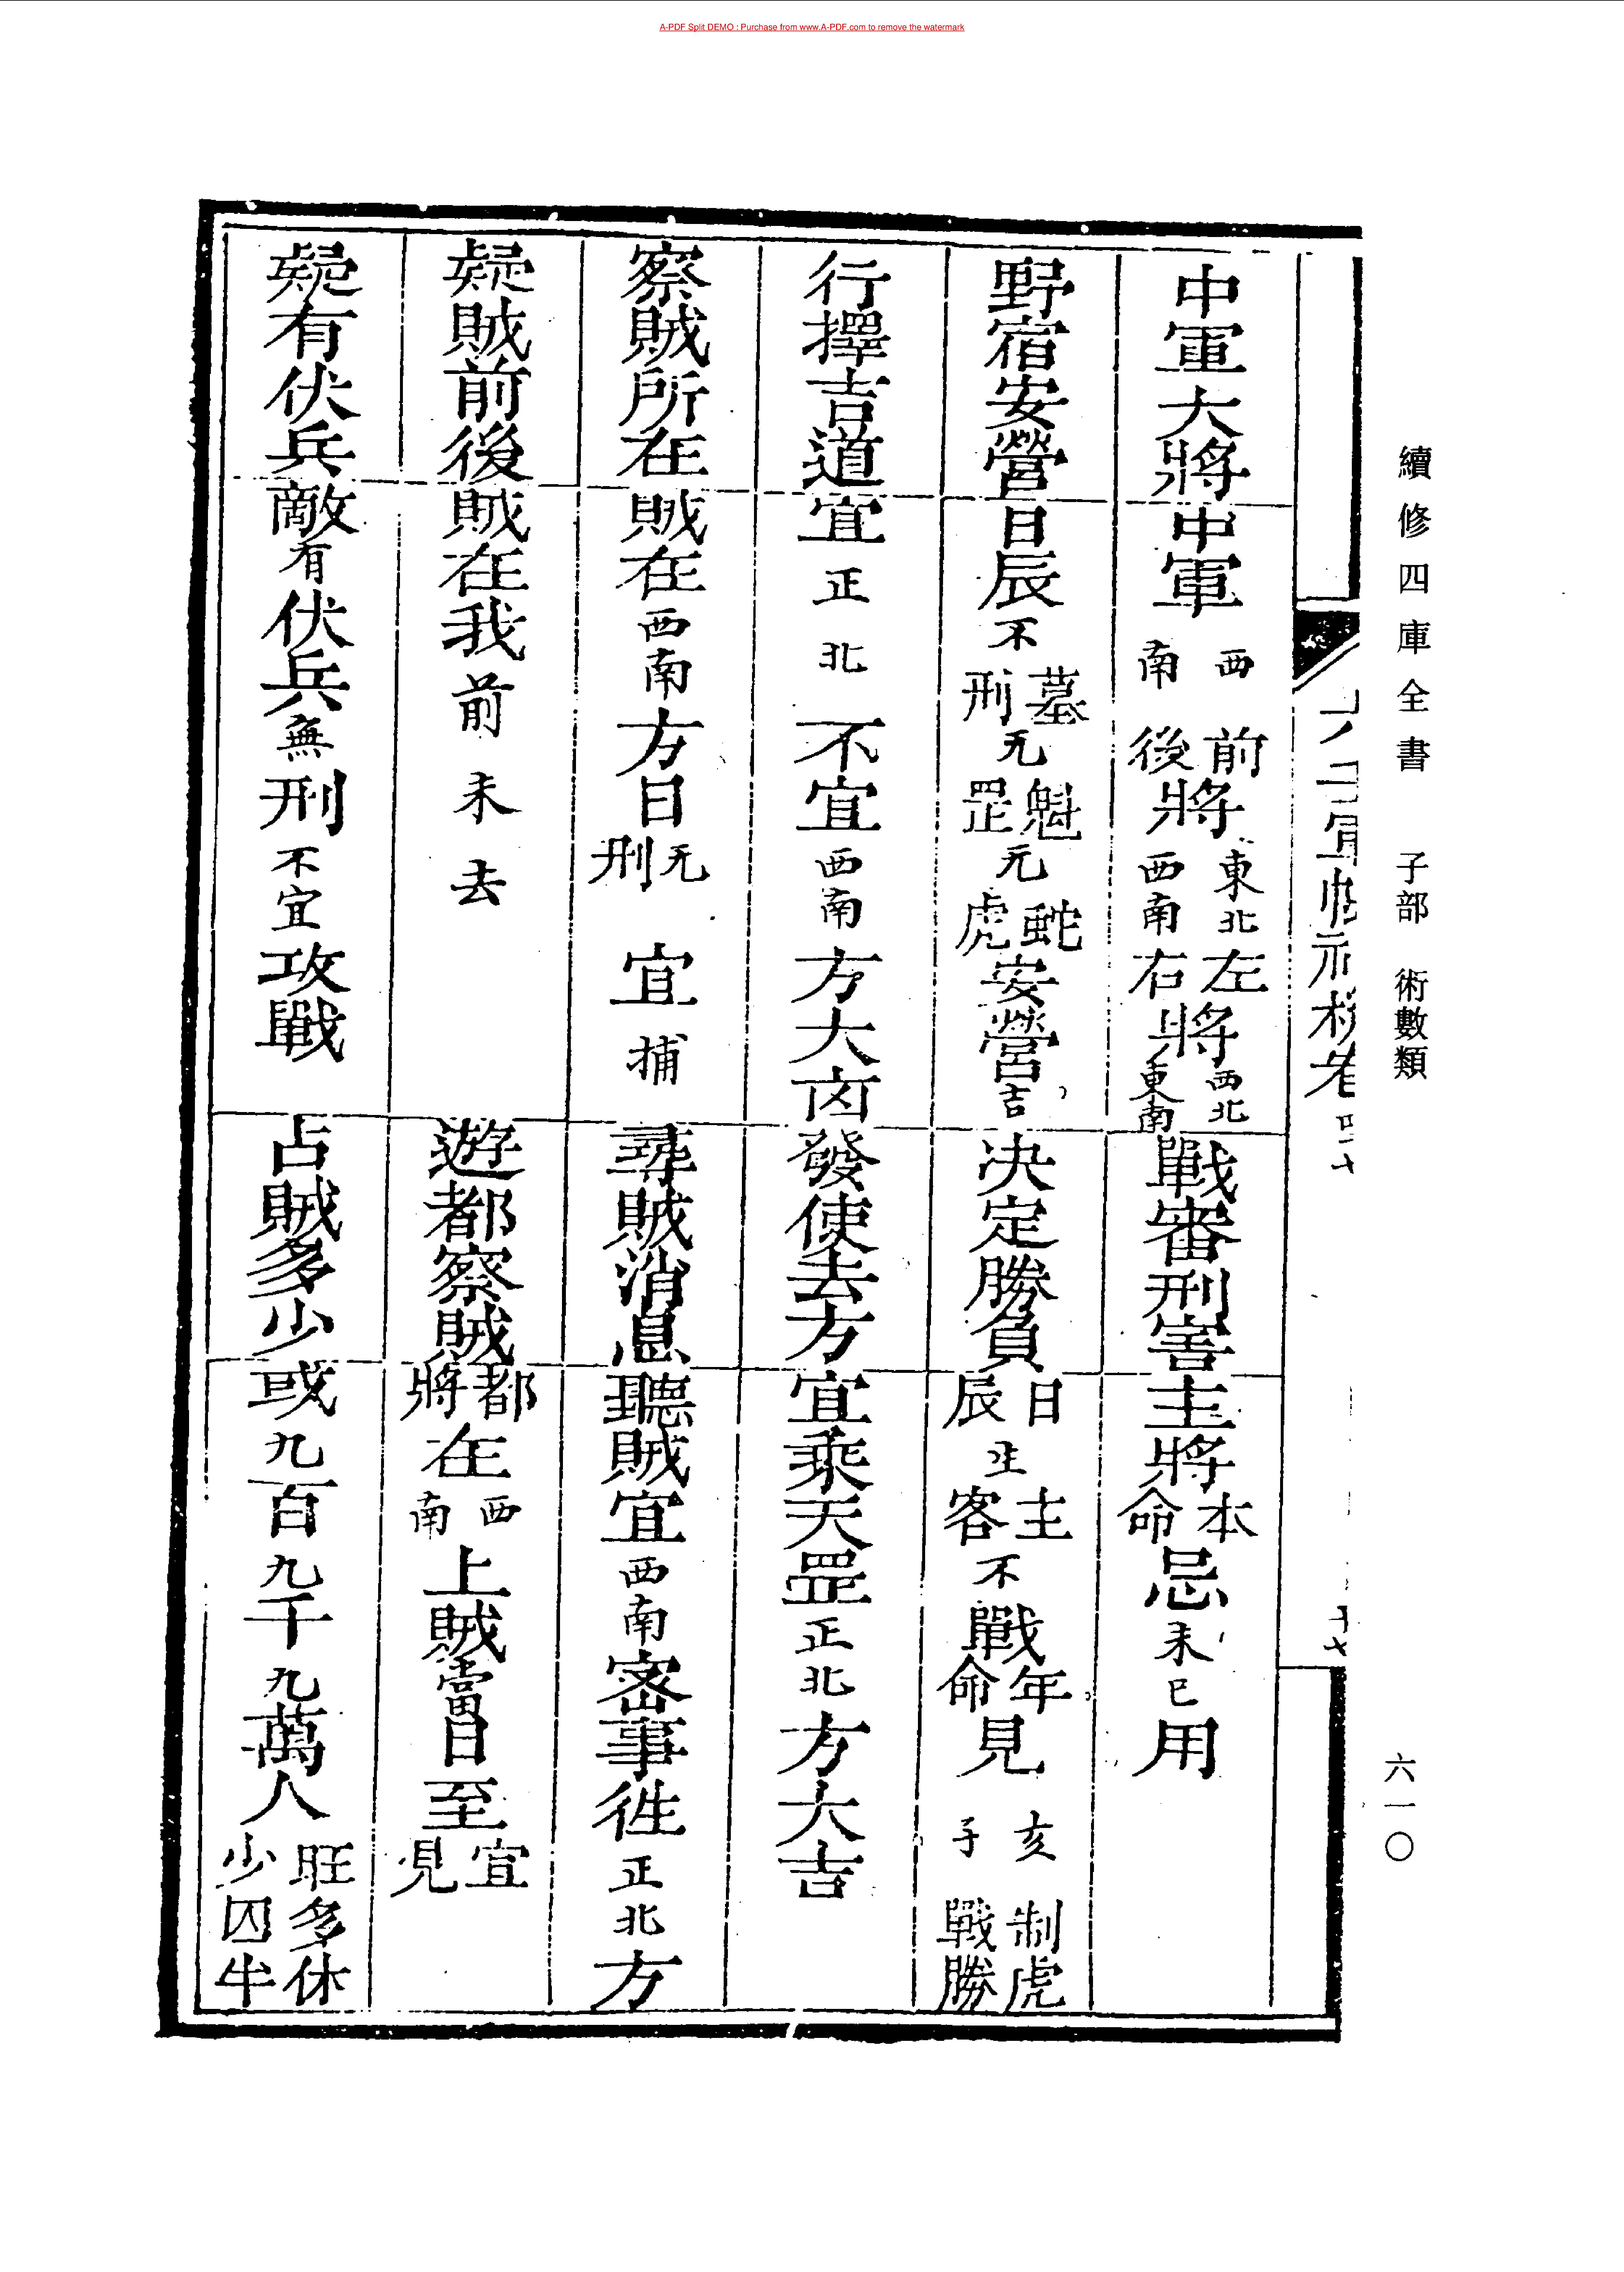 A-PDF Split DEMO : Purchase from www.A-PDF.com to remove the watermark
續修四庫全書 子部 術數類
六一〇
中軍大將
中軍西南前後將東北西南左右將西北東南
戰審刑害
主將本命忌未巳用
野宿安營
日辰不墓刑无魁罡元蛇虎安營吉
決定勝負
日辰生主客不戰年命見亥子制虎戰勝
行擇吉道
宜正北不宜西南方大凶
發使去方
宜乘天罡正北方大吉
察賊所在
賊在西南方日无刑宜捕
尋賊消息
聽賊宜西南密事徃正北方
疑賊前後
賊在我前未去
遊都察賊
都將在西南上賊當日至宜見
疑有伏兵
敵有伏兵無刑不宜攻戰
占賊多少
或九百九千九萬人旺多休少囚半